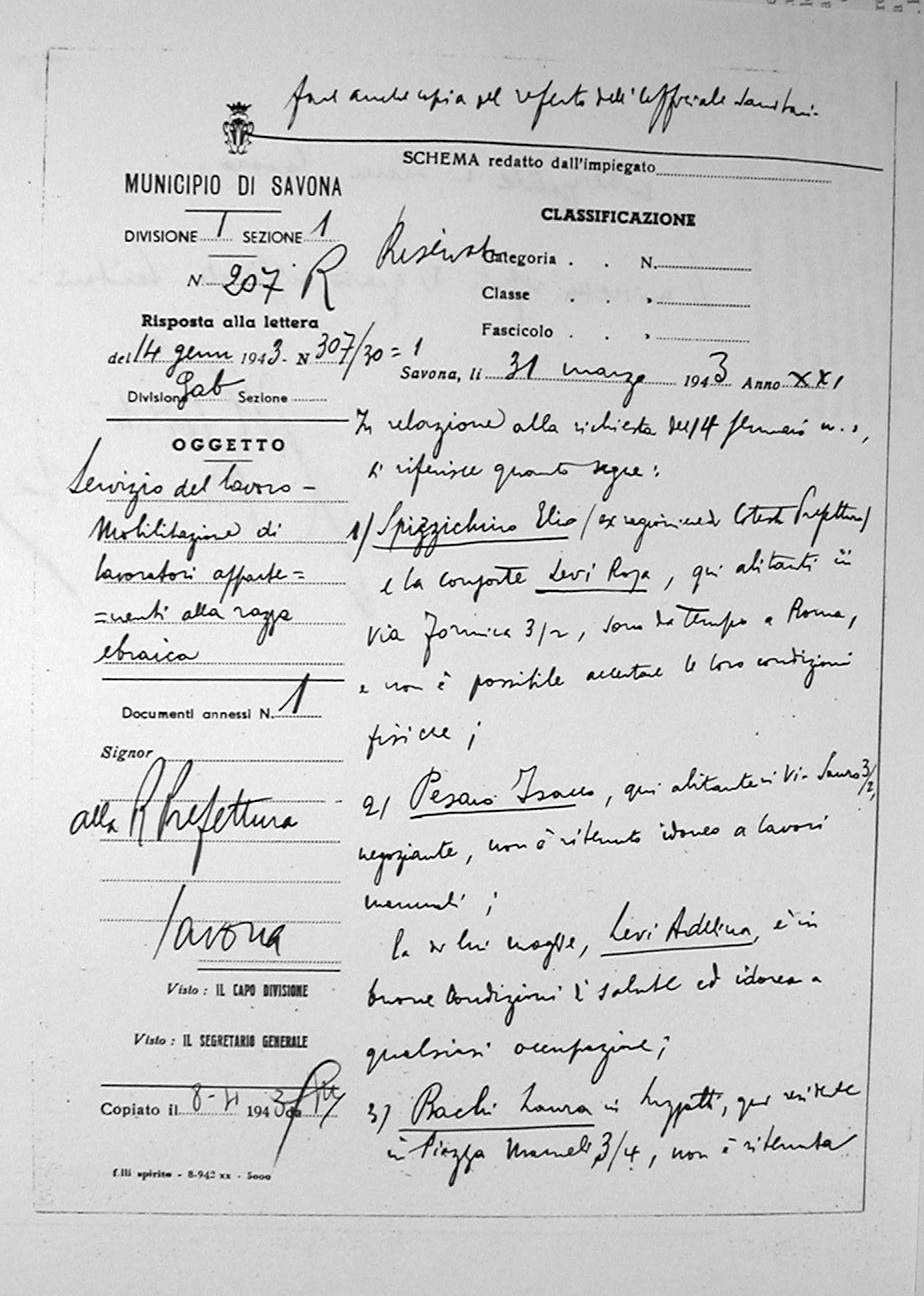 fare anche copia del referto dell'Ufficiale Sanitari-
SCHEMA redatto dall'impiegato
MUNICIPIO DI SAVONA
DIVISIONE I SEZIONE 1
N. 207 R
Risposta alla lettera
del 14 genn 1943- N 307/30=1
Division Gab Sezione
OGGETTO
Servizio del lavoro -
Mobilitazione di
lavoratori apparte=
=nenti alla razza
ebraica
Documenti annessi N. 1
Signor
alla R Prefettura
Savona
Visto : IL CAPO DIVISIONE
Visto : IL SEGRETARIO GENERALE
Copiato il 8-4 1943 da
f.lli spirito - 8-942 xx - 5000
CLASSIFICAZIONE
Riservata
Categoria . . N.
Classe . . »
Fascicolo . . »
Savona, li 31 marzo 1943 Anno XXI
In relazione alla richiesta del 14 gennaio u.s.,
si riferisce quanto segue:
1/ Spizzichino Elio (ex ragioniere di Cotesta Prefettura)
e la consorte Levi Rosa, qui abitanti in
Via Formica 3/2, sono da tempo a Roma,
e non è possibile accertare le loro condizioni
fisiche;
2/ Pesaro Isacco, qui abitante in Via Sauro 3/2,
negoziante, non è ritenuto idoneo a lavori
manuali;
la di lui moglie, Levi Adelina, è in
buone condizioni di salute ed idonea a
qualsiasi occupazione;
3) Bachi Laura in Luzzatti, qui residente
in Piazza Mameli 3/4, non è ritenuta